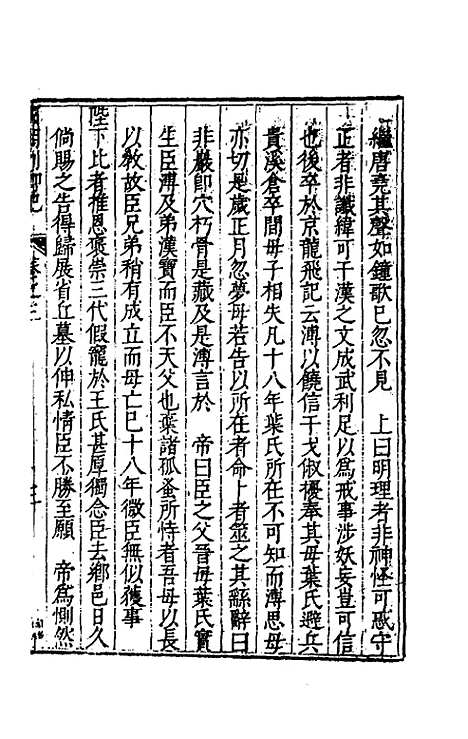 繼唐堯其聲如鐘歌已忽不見　上曰明理者非神怪可惑守
正者非讖緯可干漢之文成武利足以爲戒事涉妖妄豈可信
也後卒於京龍飛記云溥以饒信干戈俶擾奉其母葉氏避兵
貴溪倉卒間母子相失凡十八年葉氏所在不可知而溥思母
亦切是歲正月忽夢母若告以所在者命卜者筮之其繇辭曰
非巖即穴朽骨是藏及是溥言於　帝曰臣之父晉母葉氏實
生臣溥及弟漢寶而臣不天父也葉諸孤蚤所恃者吾母以長
以敎故臣兄弟稍有成立而母亡巳十八年微臣無似獲事
陛下比者推恩褒崇三代假寵於王氏甚厚獨念臣去鄕邑日久
倘賜之告得歸展省丘墓以伸私情臣不勝至願　帝爲惻然